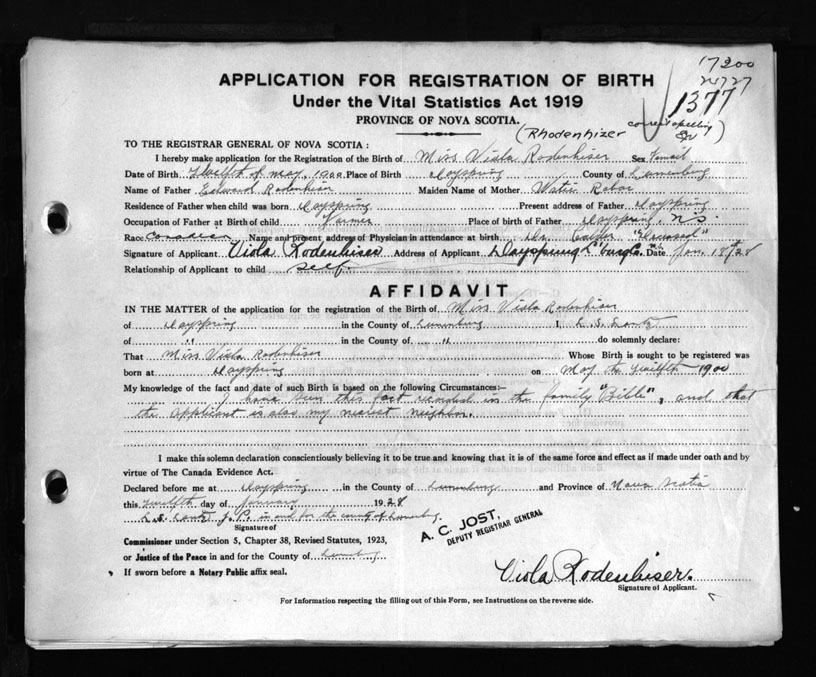 17200
2727
1377
APPLICATION FOR REGISTRATION OF BIRTH
Under the Vital Statistics Act 1919
PROVINCE OF NOVA SCOTIA.
(Rhodenhizer correct spelling)
TO THE REGISTRAR GENERAL OF NOVA SCOTIA:
I hereby make application for the Registration of the Birth of Miss Viola Rodenhiser Sex Female
Date of Birth of May, 1900 Place of Birth Dayspring County of Lunenburg
Name of Father Edward Rodenhiser Maiden Name of Mother
Residence of Father when child was born Dayspring Present address of Father Dayspring
Occupation of Father at Birth of child Farmer Place of birth of Father Dayspring, N.S.
Race Canadian Name and present address of Physician in attendance at birth Dr.
Signature of Applicant Viola Rodenhiser Address of Applicant Dayspring L'burg Co. Date Jan. 18th 28
Relationship of Applicant to child self.
AFFIDAVIT
IN THE MATTER of the application for the registration of the Birth of Miss Viola Rodenhiser
of Dayspring in the County of Lunenburg I, L. S.
of " in the County of " do solemnly declare:
That Miss Viola Rodenhiser Whose Birth is sought to be registered was
born at Dayspring on May the 1900
My knowledge of the fact and date of such Birth is based on the following Circumstances:—
I have seen this fact recorded in the family "Bible", and that
the applicant is also my nearest neighbor.
I make this solemn declaration conscientiously believing it to be true and knowing that it is of the same force and effect as if made under oath and by
virtue of The Canada Evidence Act.
Declared before me at Dayspring in the County of Lunenburg and Province of Nova Scotia
this day of January 1928
L. S. J. P. in and for the county of Lunenburg
Signature of
Commissioner under Section 5, Chapter 38, Revised Statutes, 1923,
or Justice of the Peace in and for the County of Lunenburg
If sworn before a Notary Public affix seal.
A. C. JOST,
DEPUTY REGISTRAR GENERAL
Viola Rodenhiser.
Signature of Applicant.
For Information respecting the filling out of this Form, see Instructions on the reverse side.